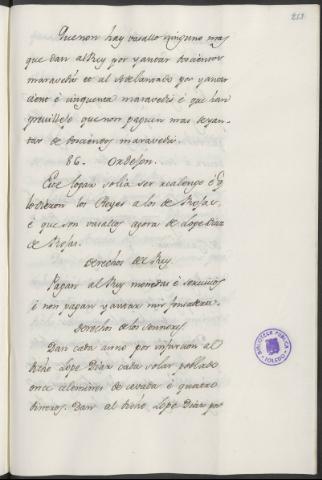 217
Que non hay vasallo ninguno mas
que dan al Rey por yantar doscientos
maravedis et al Adelantado por yantar
cient é cinquenta maravedis é que han
previllejo que non paguen mas de yan-
tar de doscientos maravedis.
86. Ordejon.
Este logar solia ser realengo é q.
lo dieron los Reyes a los de Rojas,
é que son vasallos agora de Lope Diaz
de Rojas.
Derechos del Rey.
Pagan al Rey monedas é servicios
é non pagan yantar nin fonsadera.
Derechos de los Sennores.
Dan cada anno por infurcion al
dicho Lope Diaz cada solar poblado
once celemines de cevada é quatro
dineros. Dan al dicho Lope Diaz por
BIBLIOTECA PUBLICA
TOLEDO